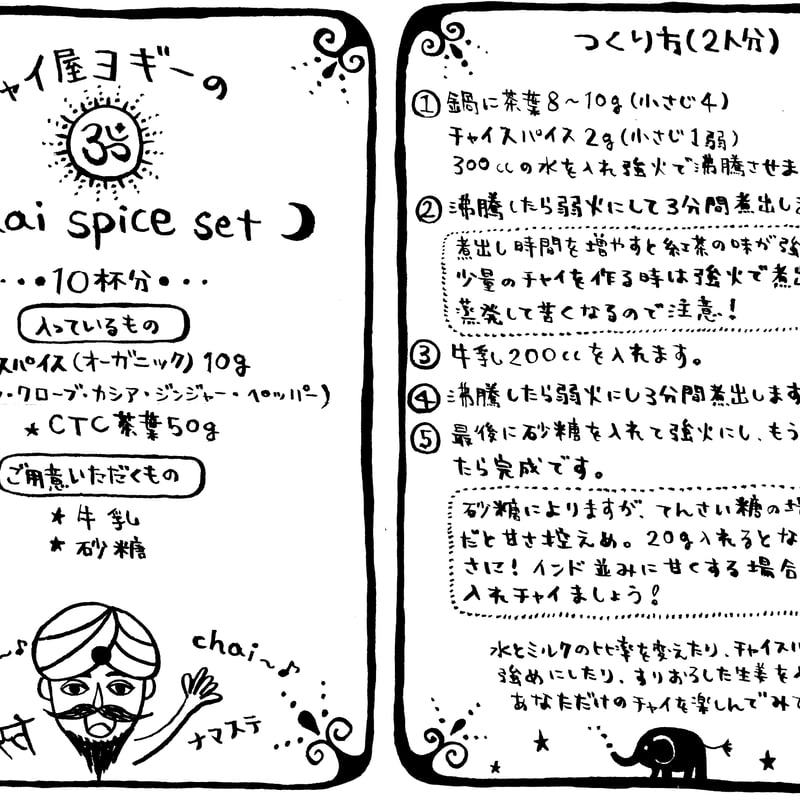 チャイ屋ヨギーの
ॐ
chai spice set
10杯分
入っているもの
スパイス(オーガニック)10g
・クローブ・カシア・ジンジャー・ペッパー)
★CTC茶葉50g
ご用意いただくもの
★牛乳
★砂糖
chai〜♪
ナマステ
つくり方(2人分)
① 鍋に茶葉8〜10g(小さじ4)
チャイスパイス2g(小さじ1弱)
300ccの水を入れ強火で沸騰させま
② 沸騰したら弱火にして3分間煮出しま
煮出し時間を増やすと紅茶の味が強
少量のチャイを作る時は強火で煮出
蒸発して苦くなるので注意!
③ 牛乳200ccを入れます。
④ 沸騰したら弱火にし3分間煮出します
⑤ 最後に砂糖を入れて強火にし、もう
たら完成です。
砂糖によりますが、てんさい糖の場
だと甘さ控えめ。20g入れるとな
さに!インド並みに甘くする場合
入れチャイましょう!
水とミルクの比率を変えたり、チャイスパ
強めにしたり、すりおろした生姜を
あなただけのチャイを楽しんでみて